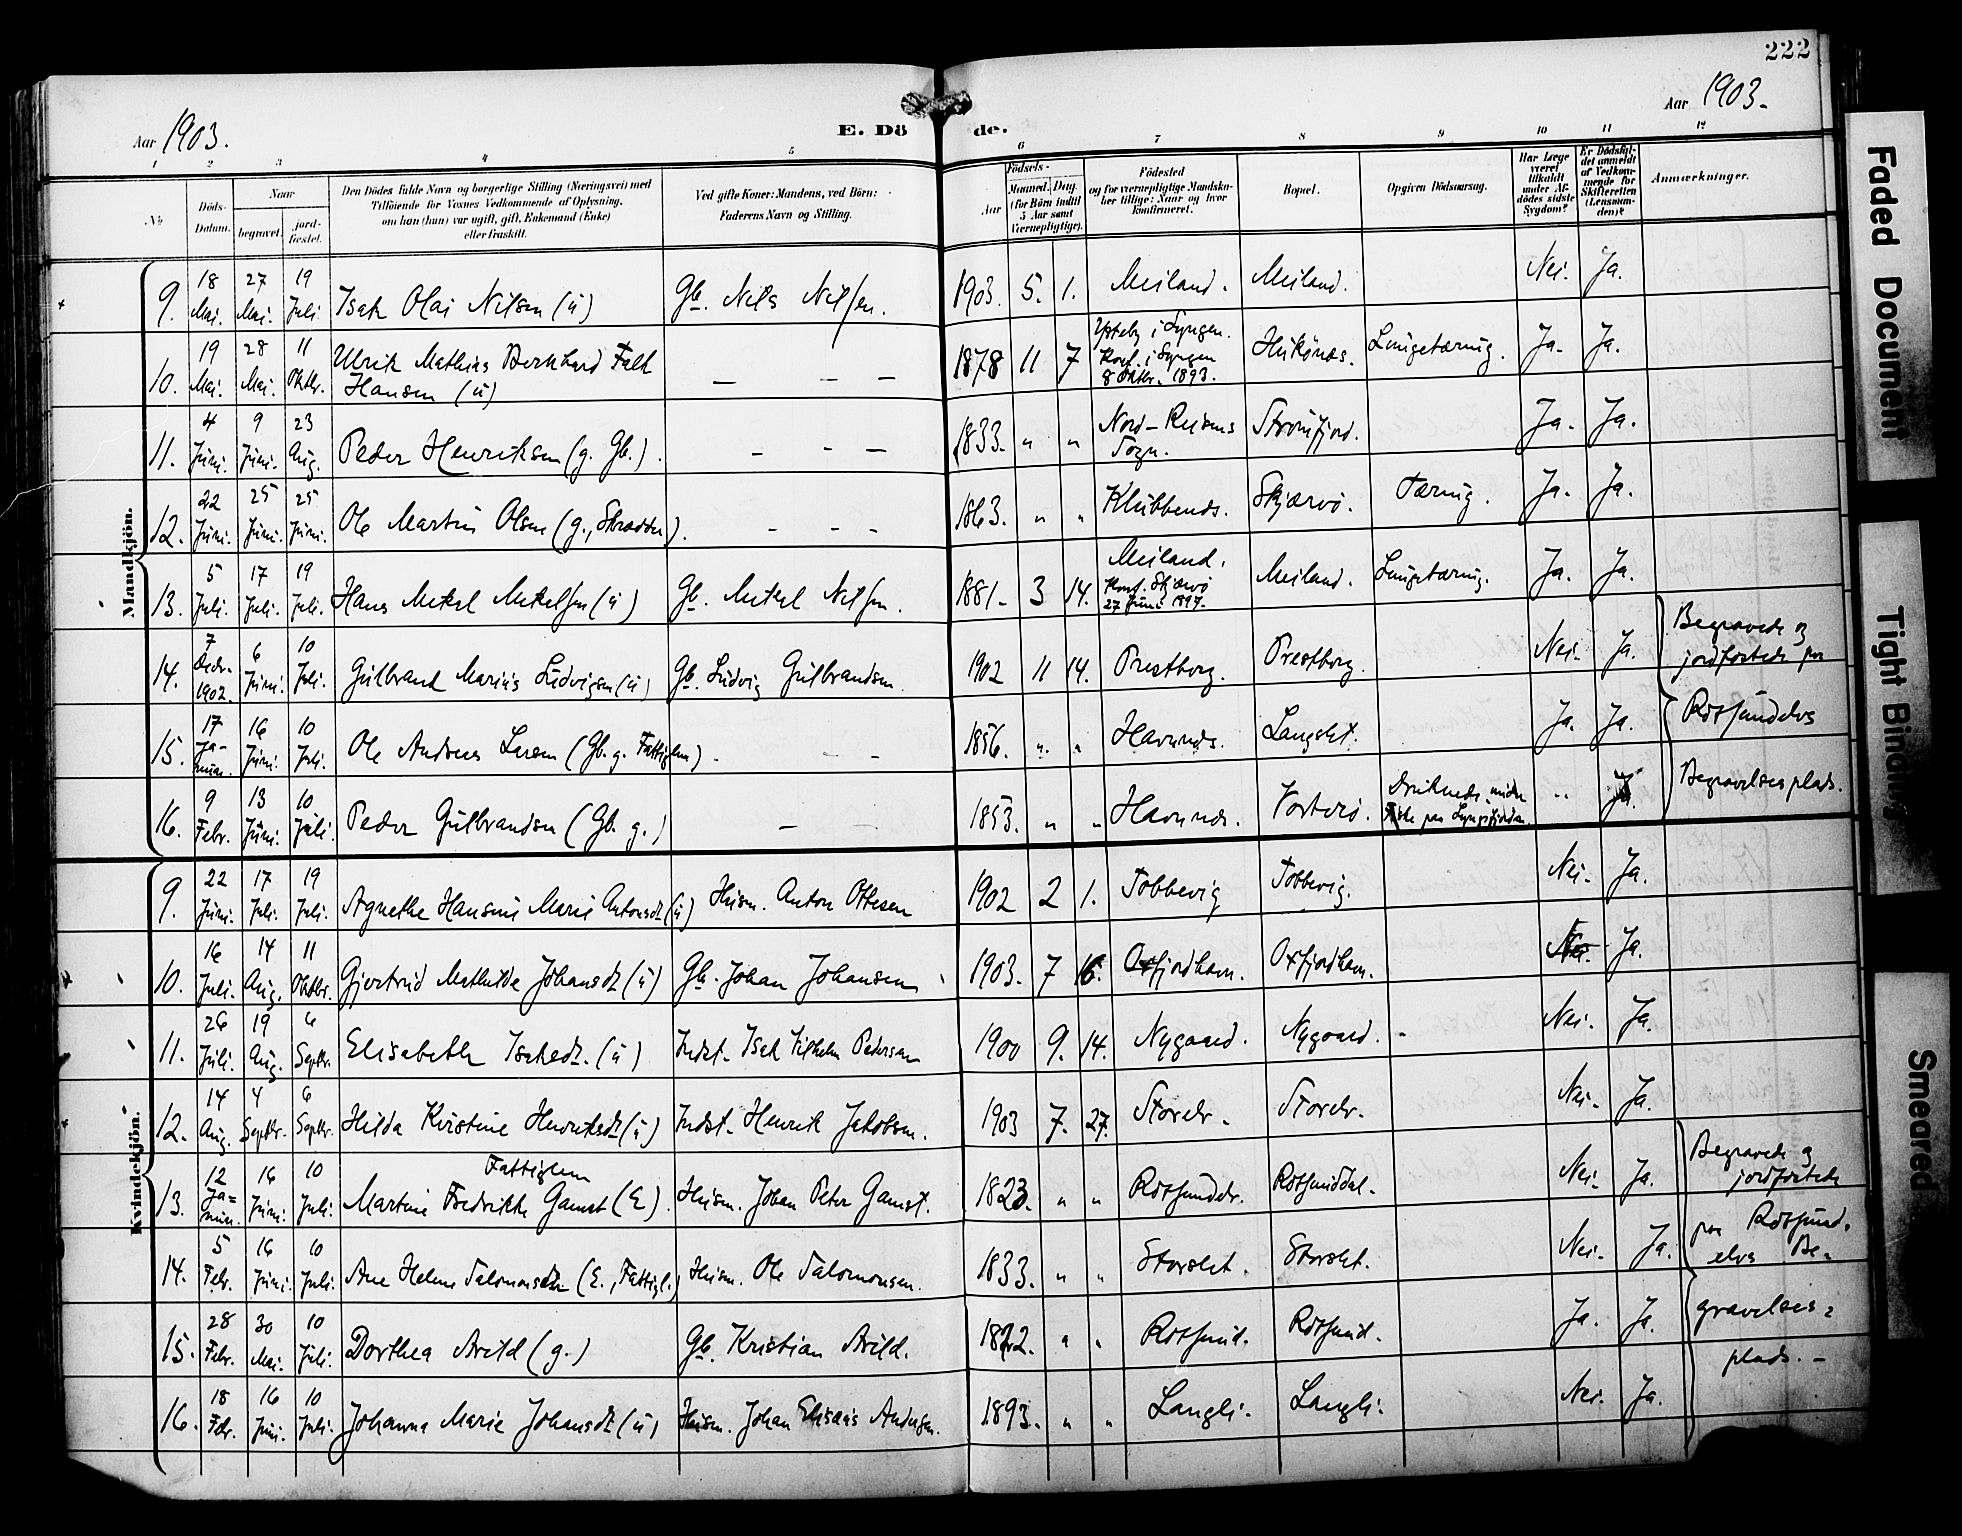 222
Aar 1903.
E. Döde.
Aar 1903.
1 2 3 4 5 6 7 8 9 10 11 12
No
Döds-Datum.
Naar
begravet.
jord-fæstet.
Den Dödes fulde Navn og borgerlige Stilling (Næringsvei) med
Tilföiende for Voxnes Vedkommende af Oplysning,
om han (hun) var ugift, gift, Enkemand (Enke)
eller fraskilt.
Ved gifte Koner: Mandens, ved Börn:
Faderens Navn og Stilling.
Födsels-
Aar
Maaned. Dag.
(for Börn indtil
5 Aar samt
Værnepligtige).
Födested
og for værnepligtige Mandska-
ber tillige: Naar og hvor
konfirmeret.
Bopæl.
Opgiven Dödsaarsag.
Har Læge
været
tilkaldt
under Af-
dödes sidste
Sygdom?
Er Dödsfal-
det anmeldt
af Vedkom-
mende for
Skifteretten
(Lensman-
den)?
Anmærkninger.
Mandkjön.
9. 18 Mai. 27 Mai. 19 Juli. Isak Olai Nilsen (u) Gb. Nils Nilsen. 1903. 5. 1. Meiland. Meiland. Nei. Ja.
10. 19 Mai. 28 Mai. 11 Oktbr. Ulrik Mathias Bernhard Falk
Hansen (u) — — — 1878 11 7 i Lyngen.
Konf. i Lyngen
8 Oktbr. 1893. Lungetæring. Ja. Ja.
11. 4 Juni. 9 Juni. 23 Aug. Peder Henriksen (g. Gb.). — — — 1833. " " Nord-Reisens
Sogn. Straumfjord. Ja. Ja.
12. 22 Juni. 25 Juni. 25 Juni. Ole Martin Olsen (g., Skrædder). — — — 1863. " " Klubbenes. Skjærvö. Tæring. Ja. Ja.
13. 5 Juli. 17 Juli. 19 Juli. Hans Mikal Mikalsen (u) Gb. Mikal Nilsen. 1881. 3 14. Meiland.
Konf. Skjærvö
27 Juni 1897. Meiland. Lungetæring. Ja. Ja.
14. 7 Decbr. 1902. 6 Juni. 10 Juli. Gulbrand Marius Ludvigsen (u) Gb. Ludvig Gulbrandsen. 1902 11 14. Prestborg. Prestborg. Nei. Ja. Begravede og
jordfæstede paa
15. 17 Januar. 16 Juni. 10 Juli. Ole Andreas Larsen (Gb. g. Fattiglem). — — 1856. " " Havnnes. Langslet. Ja. Ja. Rotsundelvs
16. 9 Febr. 13 Juni. 10 Juli. Peder Gulbrandsen (Gb. g.) — — 1853. " " Havnnes. Vorterö. Druknede under
Fiske paa Lyngsfjorden. " Ja. Begravelsesplads.
Kvindekjön.
9. 22 Juni. 17 Juli. 19 Juli. Agnethe Hansine Marie Antonsdt. (u) Husm. Anton Ottesen 1902 2 1. Tobbevig Tobbevig. Nei. Ja.
10. 16 Juli. 14 Aug. 11 Oktbr. Gjertrud Mathilde Johansdt. (u) Gb. Johan Johansen 1903. 7 16. Oxfjordhavn. Oxfjordhavn. Nei. Ja.
11. 26 Juli. 19 Aug. 6 Septbr. Elisabeth Isaksdt. (u) Indst. Isak Vilhelm Pedersen 1900 9. 14. Nygaard. Nygaard. Nei. Ja.
12. 14 Aug. 4 Septbr. 6 Septbr. Hilda Kristine Henriksdt. (u) Indst. Henrik Jakobsen. 1903 7. 27. Storelv. Storelv. Nei. Ja.
13. 12 Januar. 16 Juni. 10 Juli. Fattiglem
Martine Fredrikke Gamst (E). Husm. Johan Peter Gamst. 1823. " " Rotsundelv. Rotsunddal. Nei. Ja. Begravede og
jordfæstede
14. 5 Febr. 16 Juni. 10 Juli. Ane Helene Salomonsdt. (E., Fattigl.) Husm. Ole Salomonsen. 1833. " " Storslet. Storslet. Nei. Ja. paa Rotsund-
elvs Be-
15. 28 Febr. 30 Mai. 10 Juli. Dorthea Arild (g.) Gb. Kristian Arild. 1822. " " Rotsund. Rotsund. Ja. Ja. gravelses-
plads. —
16. 18 Febr. 16 Juni. 10 Juli. Johanna Marie Johansdt. (u) Husm. Johan Elisæus Andersen. 1893. " " Langli. Langli. Nei. Ja.
Faded Document
Tight Binding
Smeared